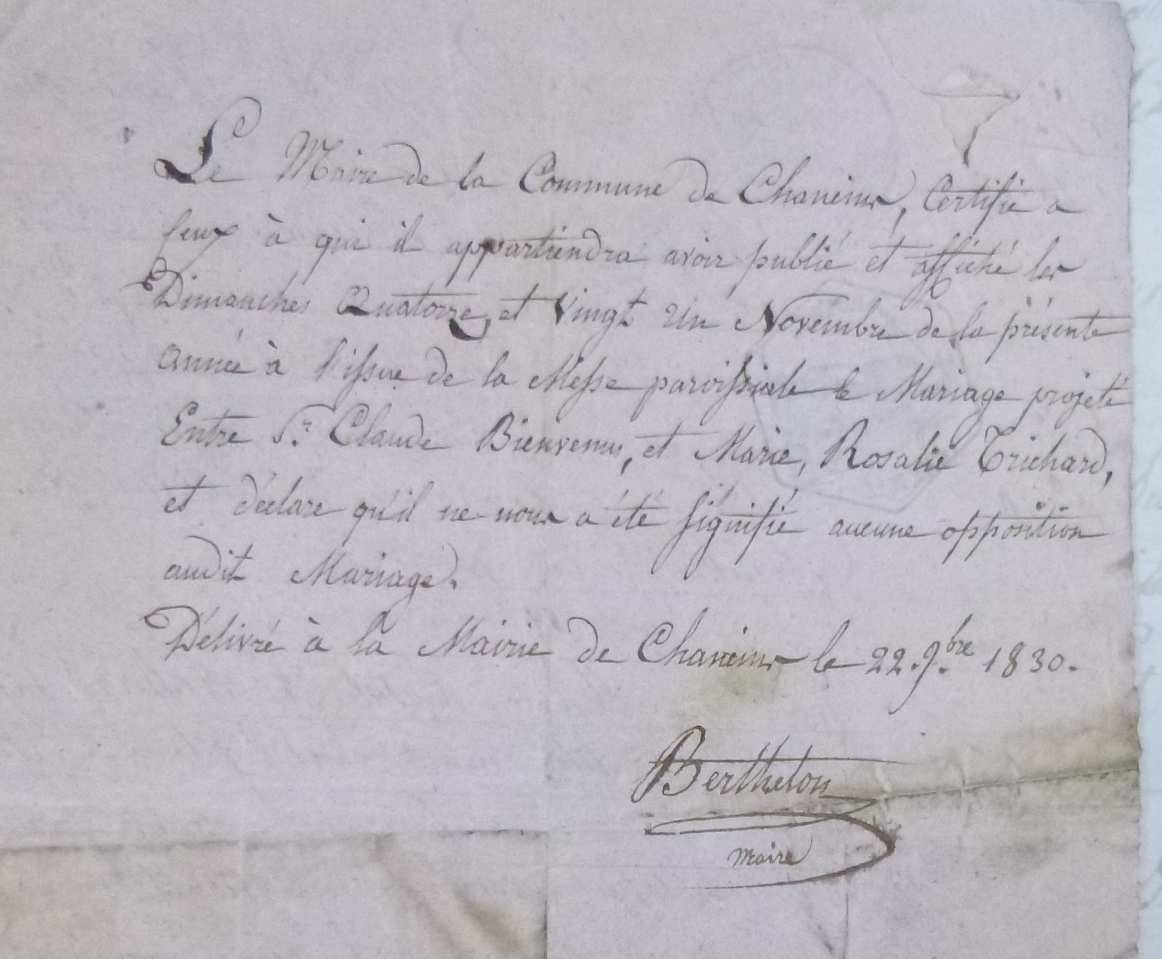 Le Maire de la Commune de Chaneins, Certifie a
Ceux à qui il appartiendra avoir publié et affiché les
Dimanches Quatorze, et Vingt Un Novembre de la présente
Année à l'issue de la Messe paroissiale le Mariage projeté
Entre Sr. Claude Bienvenu, et Marie, Rosalie Trichard,
et déclare qu'il ne nous a été signifié aucune opposition
audit Mariage.
Délivré à la Mairie de Chaneins le 22. 9.bre 1830.
Berthelon
Maire